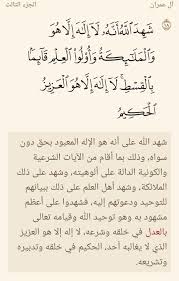 آل عمران
الجزء الثالث
شَهِدَ ٱللَّهُ أَنَّهُۥ لَآ إِلَٰهَ إِلَّا هُوَ
وَٱلْمَلَٰٓئِكَةُ وَأُو۟لُوا۟ ٱلْعِلْمِ قَآئِمًۢا
بِٱلْقِسْطِ ۚ لَآ إِلَٰهَ إِلَّا هُوَ ٱلْعَزِيزُ
ٱلْحَكِيمُ
شهد الله على أنه هو الإله المعبود بحق دون
سواه، وذلك بما أقام من الآيات الشرعية
والكونية الدالة على ألوهيته، وشهد على ذلك
الملائكة، وشهد أهل العلم على ذلك ببيانهم
للتوحيد ودعوتهم إليه، فشهدوا على أعظم
مشهود به وهو توحيد الله وقيامه تعالى
بالعدل في خلقه وشرعه، لا إله إلا هو العزيز
الذي لا يغالبه أحد، الحكيم في خلقه وتدبيره
وتشريعه.